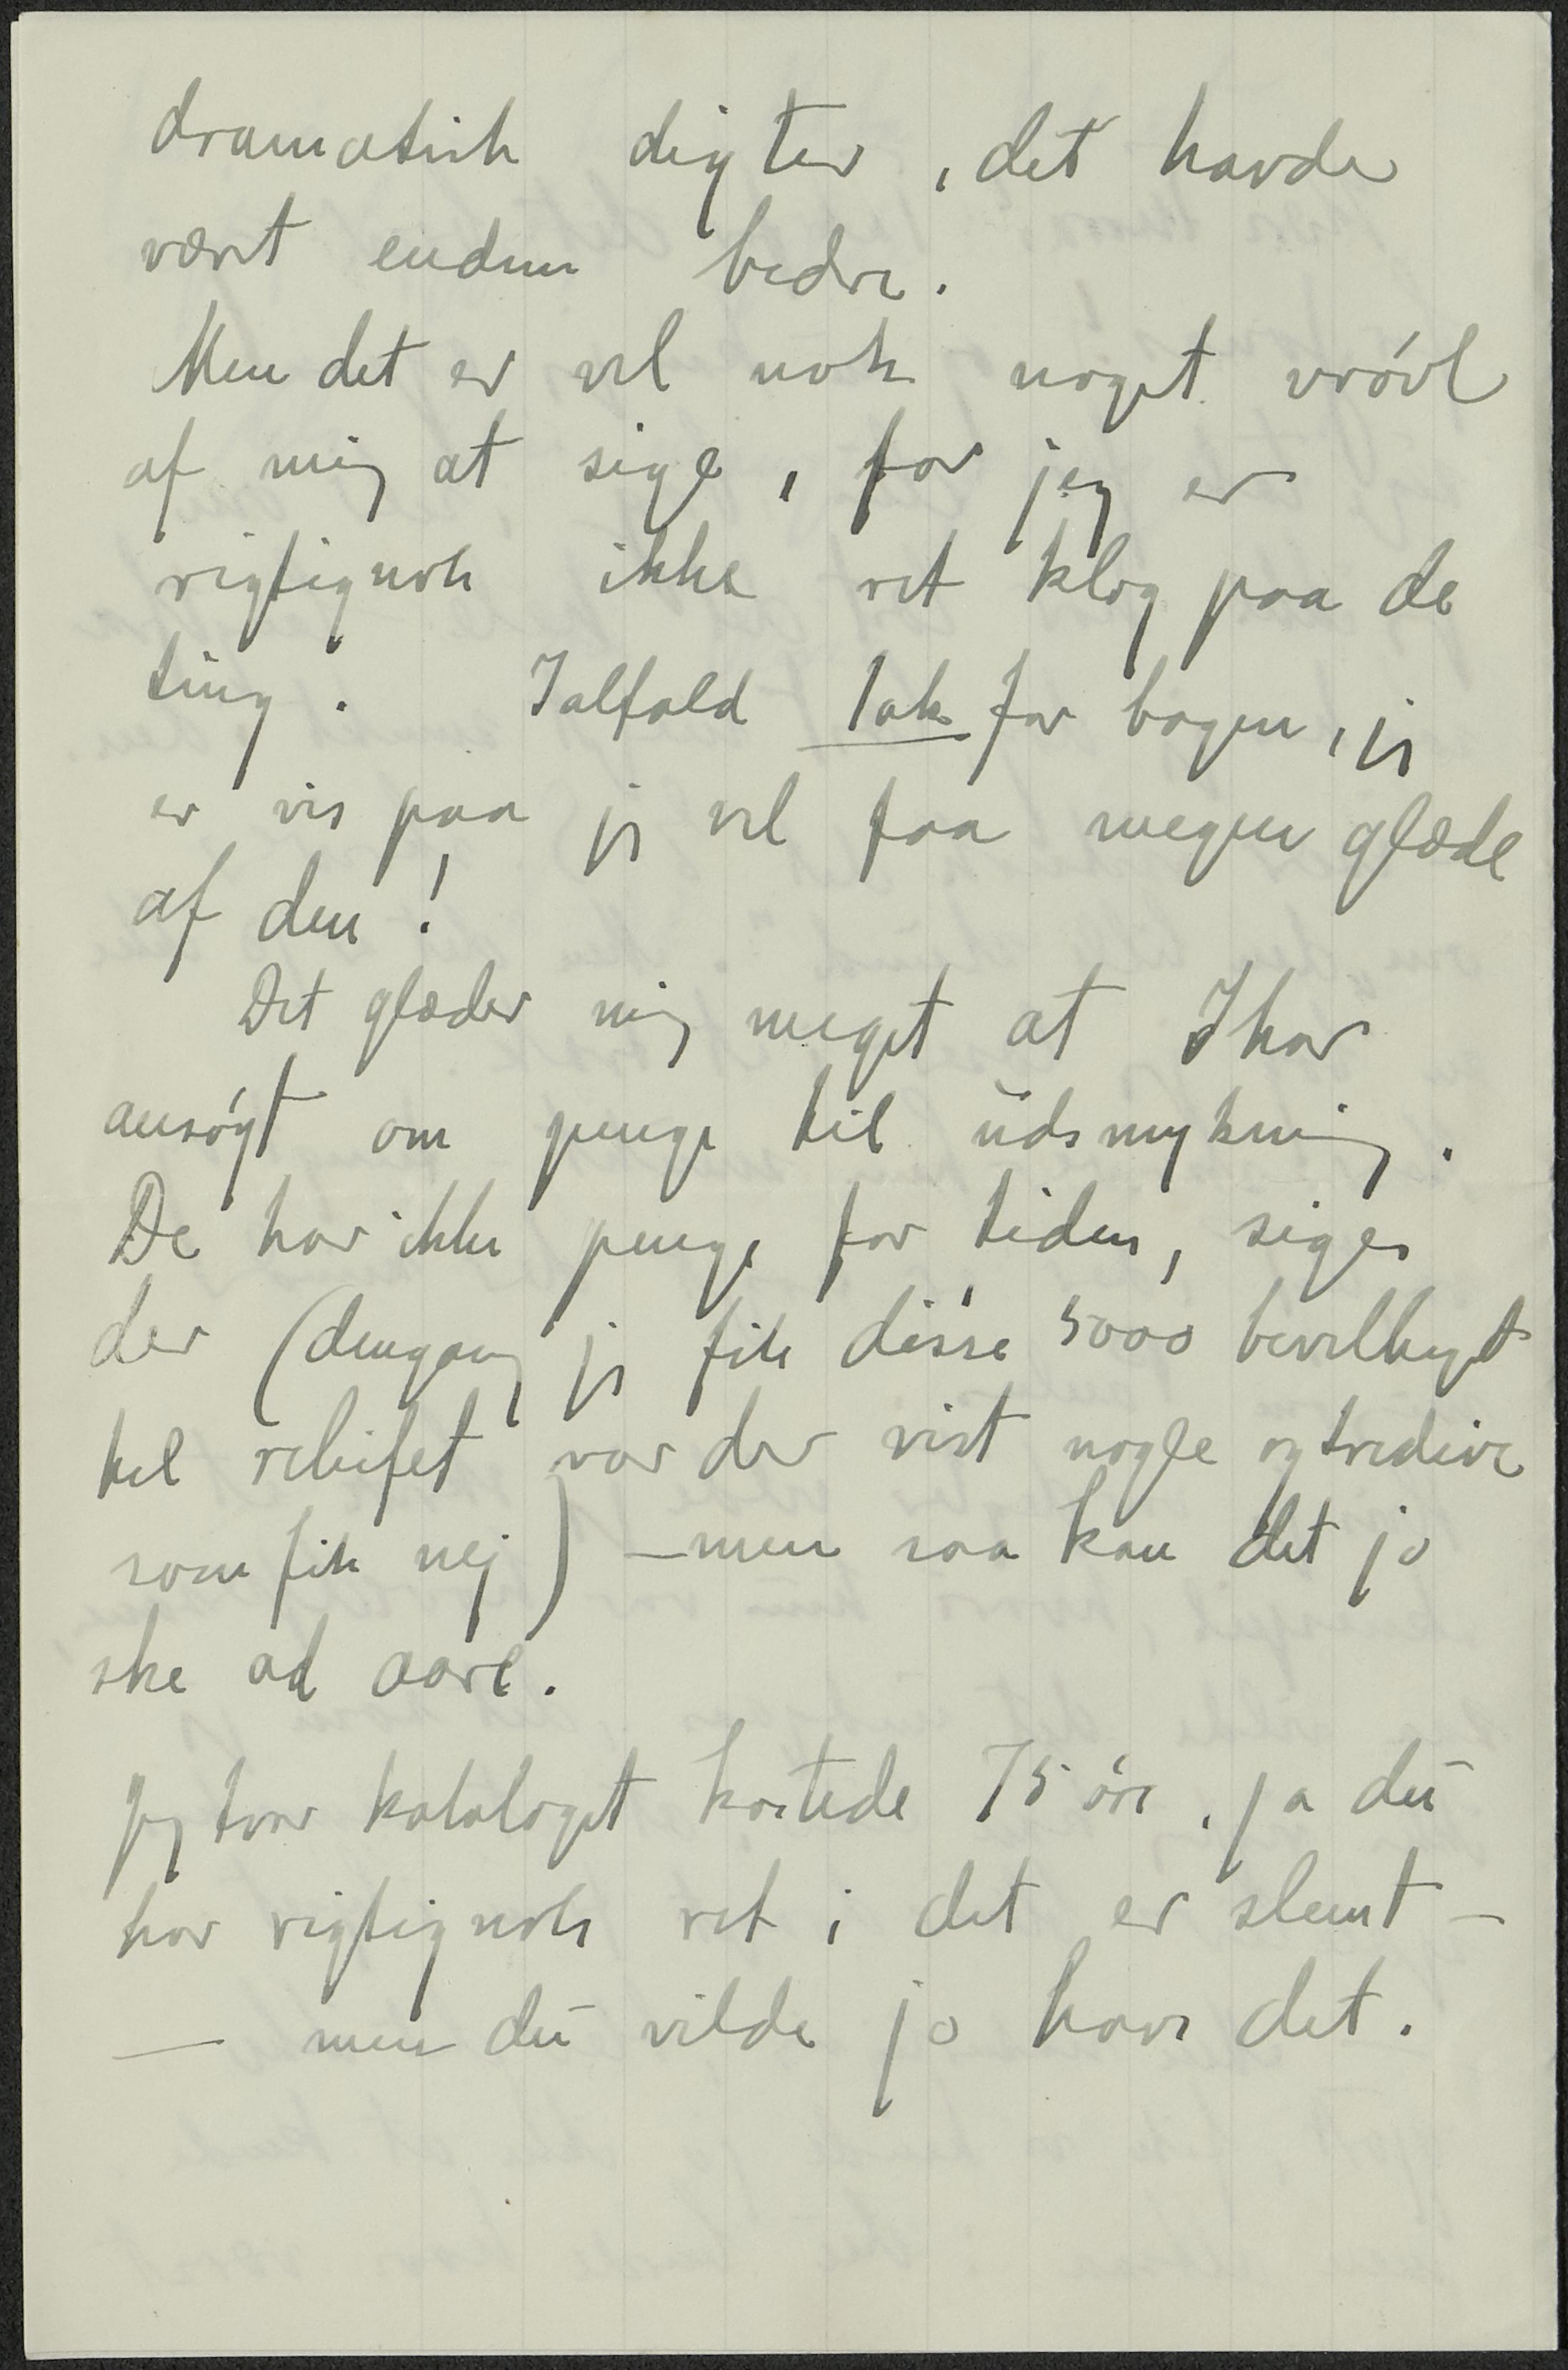 dramatisk digter, det havde
været endnu bedre.
Men det er vel nok noget vrövl
af mig at sige, for jeg er
rigtignok ikke ret klog paa de
ting. Ialfald Tak for bogen, jeg
er vis paa jeg vil faa megen glæde
af den!
Det glæder mig meget at I har
ansögt om penge til udsmykning.
De har ikke penge for tiden, siges
der (dengang jeg fik disse 5000 bevilliget
til relifet var der vist nogle og tredive
som fik nej) – men saa kan det jo
ske ad aare.
Jeg tror kataloget kostede 75 öre. ja du
har rigtignok ret i det er slemt –
– men du vilde jo have det.